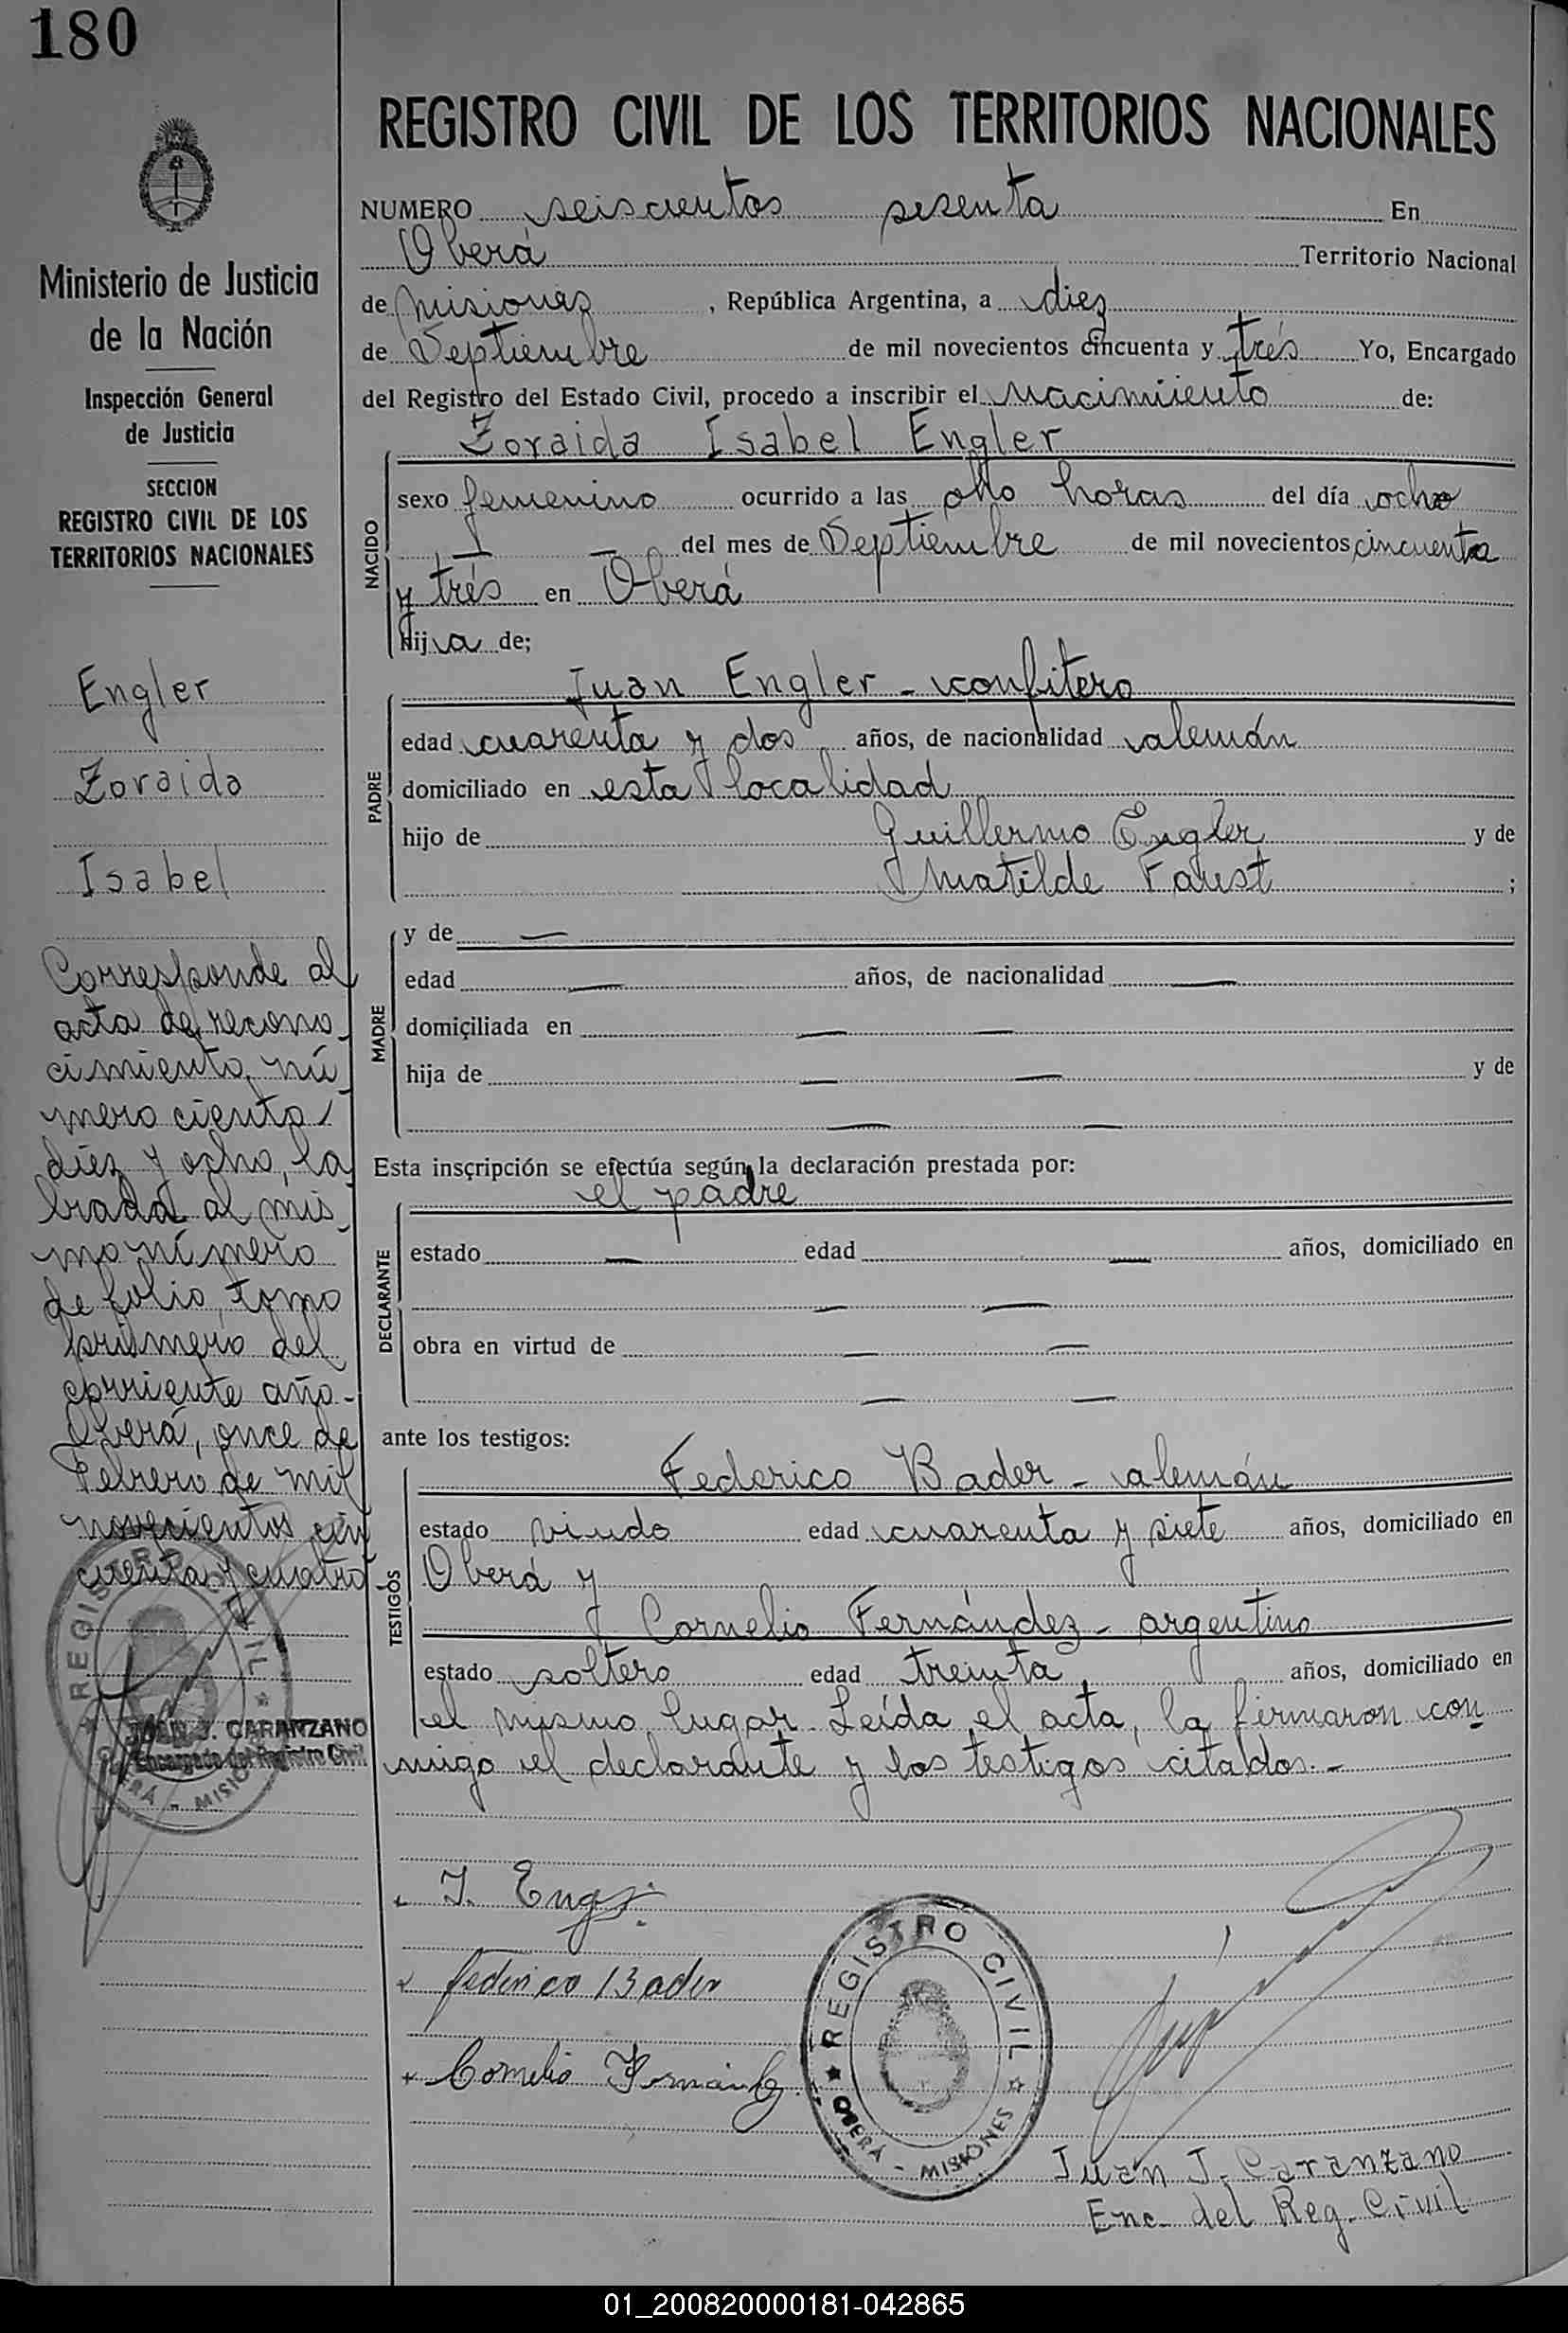 180
REGISTRO CIVIL DE LOS TERRITORIOS NACIONALES
Ministerio de Justicia
de la Nación
Inspección General
de Justicia
SECCION
REGISTRO CIVIL DE LOS
TERRITORIOS NACIONALES
Engler
Zoraida
Isabel
Corresponde al
acta de recono
cimiento, nú
mero ciento
diez y ocho, la
brada al mis
mo número
de folio, tomo
primero del
corriente año.-
Oberá, once de
Febrero de mil
novecientos cin
cuenta y cuatro
REGISTRO CIVIL
OBERÁ - MISIONES
JUAN J. CARANZANO
Encargado del Registro Civil
NUMERO seiscientos sesenta En
Oberá Territorio Nacional
de Misiones, República Argentina, a diez
de Septiembre de mil novecientos cincuenta y trés Yo, Encargado
del Registro del Estado Civil, procedo a inscribir el nacimiento de:
Zoraida Isabel Engler
NACIDO
sexo femenino ocurrido a las ocho horas del día ocho
— — del mes de Septiembre de mil novecientos cincuenta
y trés en Oberá
hija de;
Juan Engler - confitero
PADRE
edad cuarenta y dos años, de nacionalidad alemán
domiciliado en esta localidad
hijo de Guillermo Engler y de
Matilde Faust ;
MADRE
y de —
edad — años, de nacionalidad —
domiciliada en — —
hija de — — y de
— —
Esta inscripción se efectúa según la declaración prestada por:
el padre
DECLARANTE
estado — edad — años, domiciliado en
— —
obra en virtud de — —
— —
ante los testigos:
Federico Bader - alemán
TESTIGOS
estado viudo edad cuarenta y siete años, domiciliado en
Oberá y
Cornelio Fernández - argentino
estado soltero edad treinta años, domiciliado en
el mismo lugar. Leída el acta, la firmaron con
migo el declarante y los testigos citados.-
J. Engler
Federico Bader
Cornelio Fernández
REGISTRO CIVIL
OBERÁ - MISIONES
Juan J. Caranzano
Enc. del Reg. Civil
01_200820000181-042865